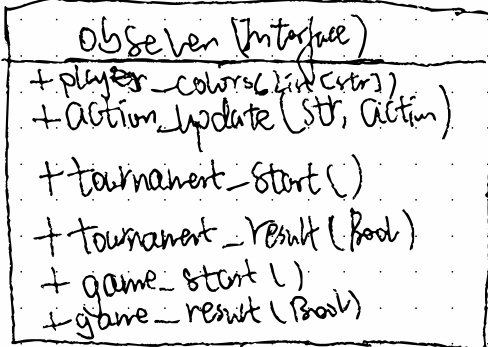 observer (Interface)
+ player_colors(List[str])
+ action_update(str, action)
+ tournament_start()
+ tournament_result(Bool)
+ game_start()
+ game_result(Bool)